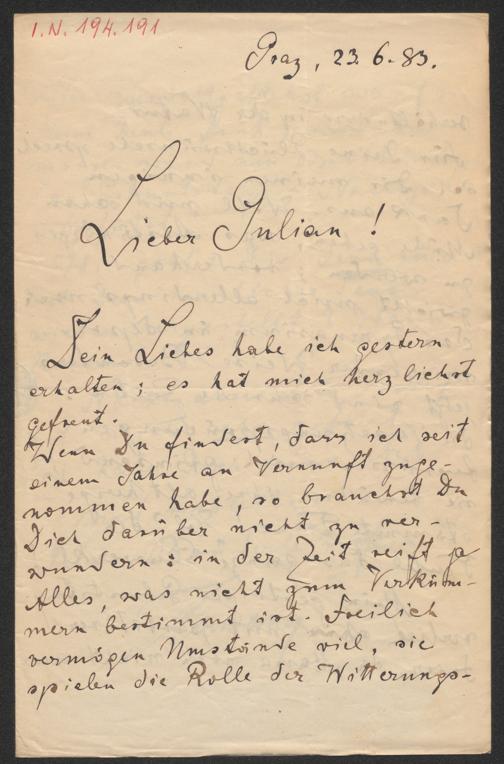 I.N. 194.191
Graz, 23. 6. 83.
Lieber Julian!
Dein Liebes habe ich gestern
erhalten; es hat mich herzlichst
gefreut.
Wenn Du findest, dass ich seit
einem Jahre an Vernunft zuge-
nommen habe, so brauchst Du
Dich darüber nicht zu ver-
wundern: in der Zeit reift ja
Alles, was nicht zum Verküm-
mern bestimmt ist. Freilich
vermögen Umstände viel, sie
spielen die Rolle der Witterungs-